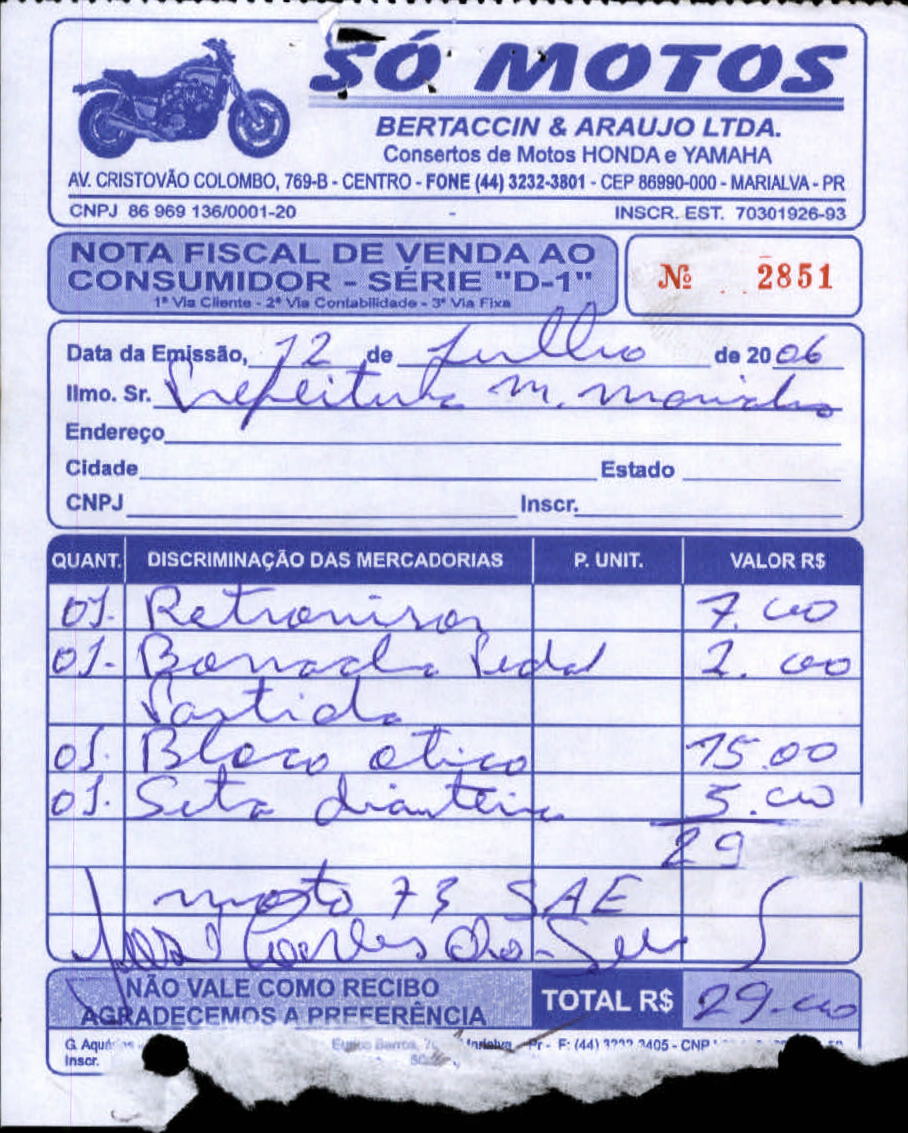 SÓ MOTOS
BERTACCIN & ARAUJO LTDA.
Consertos de Motos HONDA e YAMAHA
AV. CRISTOVÃO COLOMBO, 769-B - CENTRO - FONE (44) 3232-3801 - CEP 86990-000 - MARIALVA - PR
CNPJ 86 969 136/0001-20 - INSCR. EST. 70301926-93
NOTA FISCAL DE VENDA AO
CONSUMIDOR - SÉRIE "D-1"
1ª Via Cliente - 2ª Via Contabilidade - 3ª Via Fixa
Nº 2851
Data da Emissão, 12 de Julho de 2006
Ilmo. Sr. Prefeitura M. Marialva
Endereço
Cidade Estado
CNPJ Inscr.
QUANT. DISCRIMINAÇÃO DAS MERCADORIAS P. UNIT. VALOR R$
01. Retrovisor 7.00
01. Borracha Pedal 2.00
Partida
01. Bloco otico 15.00
01. Seta dianteira 5.00
29
moto 73 SAE
José Carlos da Silva
NÃO VALE COMO RECIBO
AGRADECEMOS A PREFERÊNCIA
TOTAL R$ 29.00
Pr - F: (44) 3232 3405 - CNP
Inscr.